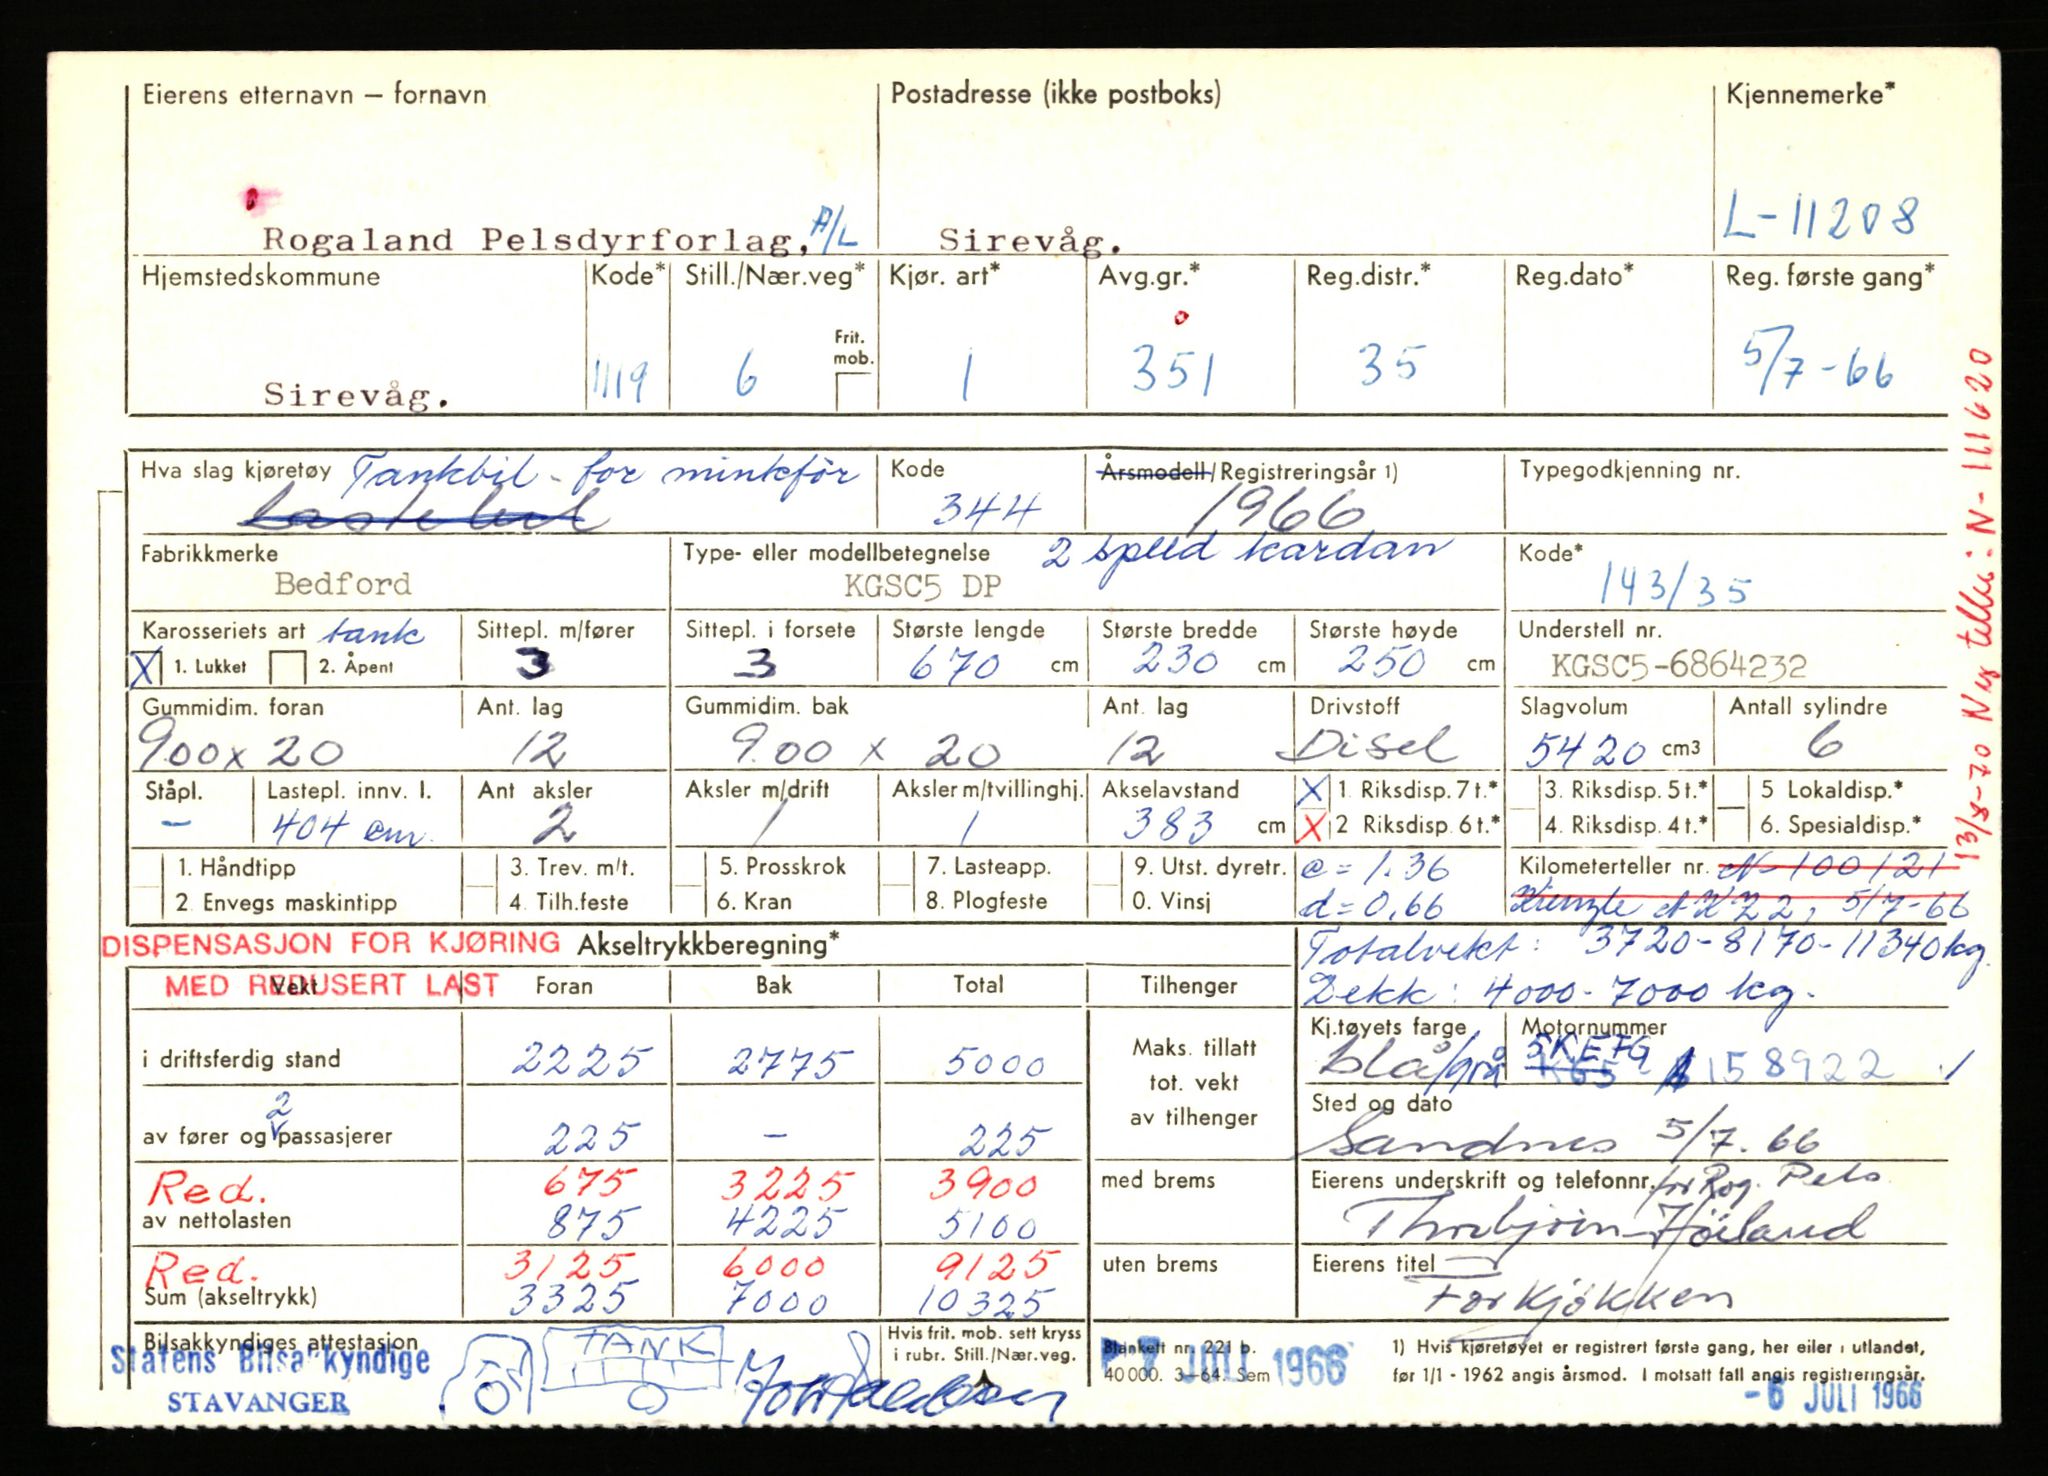 Eierens etternavn – fornavn Postadresse (ikke postboks) Kjennemerke*
Rogaland Pelsdyrforlag, A/L Sirevåg. L-11208
Hjemstedskommune Kode* Still./Nær.veg* Kjør. art* Avg.gr.* Reg.distr.* Reg.dato* Reg. første gang*
Frit. mob.
Sirevåg. 1119 6 1 351 35 5/7-66
Hva slag kjøretøy Tankbil - for minkfôr Kode Årsmodell/Registreringsår 1) Typegodkjenning nr.
Lastebil 344 1966
Fabrikkmerke Type- eller modellbetegnelse 2 speed kardan Kode*
Bedford KGSC5 DP 143/35
Karosseriets art tank Sittepl. m/fører Sittepl. i forsete Største lengde Største bredde Største høyde Understell nr.
X 1. Lukket 2. Åpent 3 3 670 cm 230 cm 250 cm KGSC5-6864232
Gummidim. foran Ant. lag Gummidim. bak Ant. lag Drivstoff Slagvolum Antall sylindre
9.00 x 20 12 9.00 x 20 12 Disel 5420 cm3 6
Ståpl. Lastepl. innv. l. Ant aksler Aksler m/drift Aksler m/tvillinghj. Akselavstand X 1. Riksdisp. 7 t.* 3. Riksdisp. 5 t.* 5 Lokaldisp.*
- 404 cm. 2 1 1 383 cm X 2 Riksdisp. 6 t.* 4. Riksdisp. 4 t.* 6. Spesialdisp.*
1. Håndtipp 3. Trev. m/t. 5. Prosskrok 7. Lasteapp. 9. Utst. dyretr. c = 1.36 Kilometerteller nr. N-100121
2. Envegs maskintipp 4. Tilh.feste 6. Kran 8. Plogfeste 0. Vinsj d = 0,66 Kienzle 5/7-66
DISPENSASJON FOR KJØRING Akseltrykkberegning* Totalvekt: 3720-8170-11340 kg.
MED REDUSERT LAST Dekk: 4000-7000 kg.
Vekt Foran Bak Total Tilhenger
Kj.tøyets farge Motornummer
i driftsferdig stand 2225 2775 5000 Maks. tillatt tot. vekt av tilhenger Blå/grå 5KEFG K65 158922
Sted og dato
av fører og 2 passasjerer 225 - 225 Sandnes 5/7.66
Red. 675 3225 3900 med brems Eierens underskrift og telefonnr. for Rog. Pels
av nettolasten 875 4225 5100 Thorbjörn Höiland
Red. 3125 6000 9125 uten brems Eierens titel
Sum (akseltrykk) 3325 7000 10325 Forkjökken
Bilsakkyndiges attestasjon TANK Hvis frit. mob. sett kryss i rubr. Still./Nær.veg.
Statens Bilsakkyndige
STAVANGER
Blankett nr. 221 b.
40 000. 3–64. Sem
7 JULI 1966
1) Hvis kjøretøyet er registrert første gang, her eiler i utlandet,
før 1/1 - 1962 angis årsmod. I motsatt fall angis registreringsår.
-6 JULI 1966
13/8-70 Ny teller: N-111620